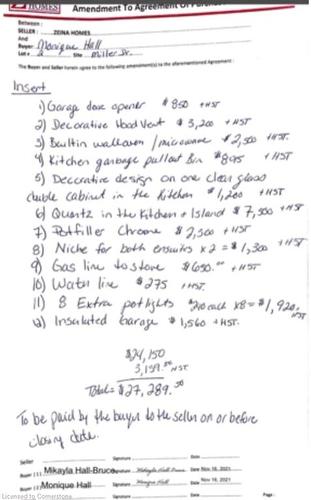 HOMES Amendment To Agreement Of
Between :
SELLER : ZEINA HOMES
And
Buyer Monique Hall
Lot 2 Site Miller Dr.
The Buyer and Seller herein agree to the following amendment(s) to the aforementioned Agreement:
Insert
1) Garage door opener $850 + HST
2) Decorative Hood Vent $3,200 + HST
3) Builtin walloven / microwave $2,500 + HST.
4) Kitchen garbage pullout Bin $895 + HST
5) Deccrative design on one clear glass
duble cabinet in the Kitchen $1,200 + HST
6) Quartz in the Kitchen + Island $7,500 + HST
7) Potfiller Chrome $2,500 + HST
8) Niche for both ensuits x 2 = $1,300 + HST
9) Gas line to stove $650.00 + HST
10) Water line $275 + HST.
11) 8 Extra potlights $240 each x8 = $1,920. HST
12) Insulated Garage $1,560 + HST.
$24,150
3,139.50 HST
Total = $27,289.50
To be paid by the buyer to the seller on or before
closing date.
Seller Signature Date
Buyer (1) Mikayla Hall-Bruce Signature Mikayla Hall-Bruce Date Nov 16, 2021
Buyer (2) Monique Hall Signature Monique Hall Date Nov 16, 2021
Signature Date Page
Licensed to Cornerstone